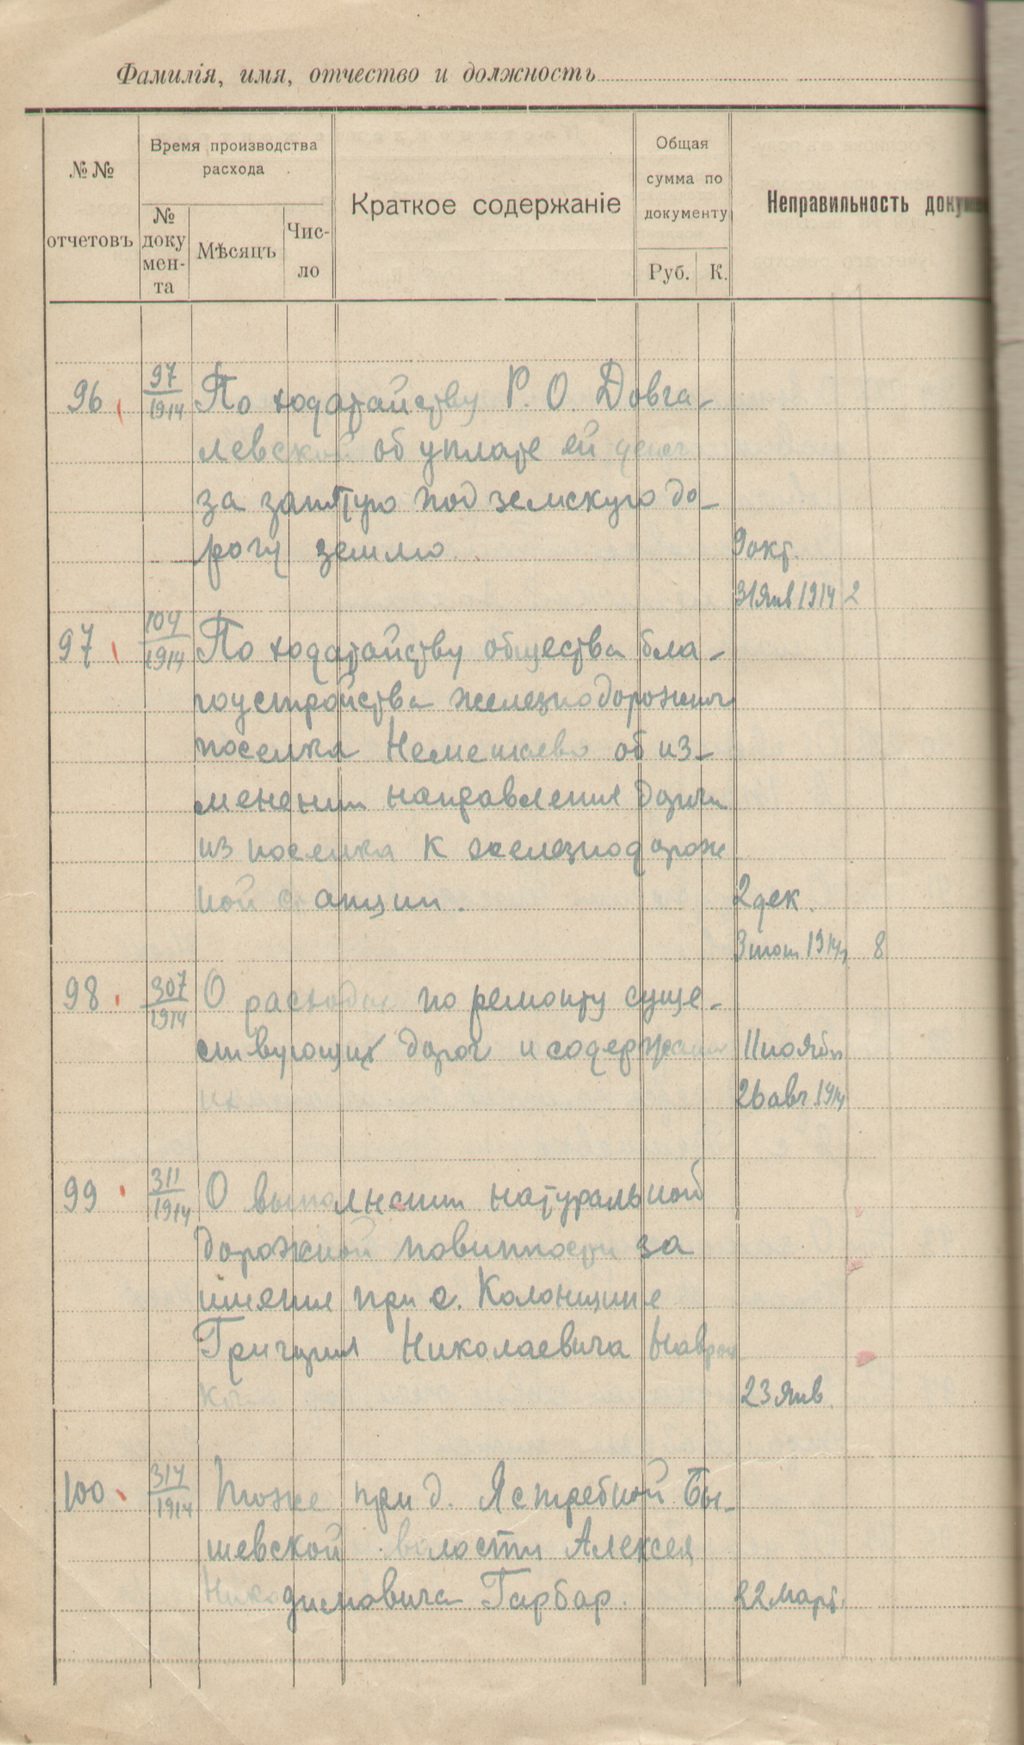 Фамилія, имя, отчество и должность
№№ отчетовъ
Время производства расхода
№ доку мен- та
Мѣсяцъ
Чис- ло
Краткое содержаніе
Общая сумма по документу
Руб. К.
Неправильность
96 97/1914 По ходатайству Р. О. Довга-
левской об уплате ей денег
за занятую под земскую до-
рогу землю. 9 окт.
31 Янв 1914 2
97 104/1914 По ходатайству общества бла-
гоустройства железнодорожн
поселка Немешаево об из-
менении направления дороги
из поселка к железнодорож
ной станции. 2 дек.
1914 8
98 307/1914 О расходах по ремонту суще-
ствующих дорог и содержании 11 ноября
26 авг. 1914
99 311/1914 О выполнении натуральной
дорожной повинности за
имения при с. Колонщине
Григория Николаевича
23 Янв.
100 317/1914 Тоже при д. Ястребной Бы-
шевской волости Алексея
Никодимовича Гарбар. 22 март.